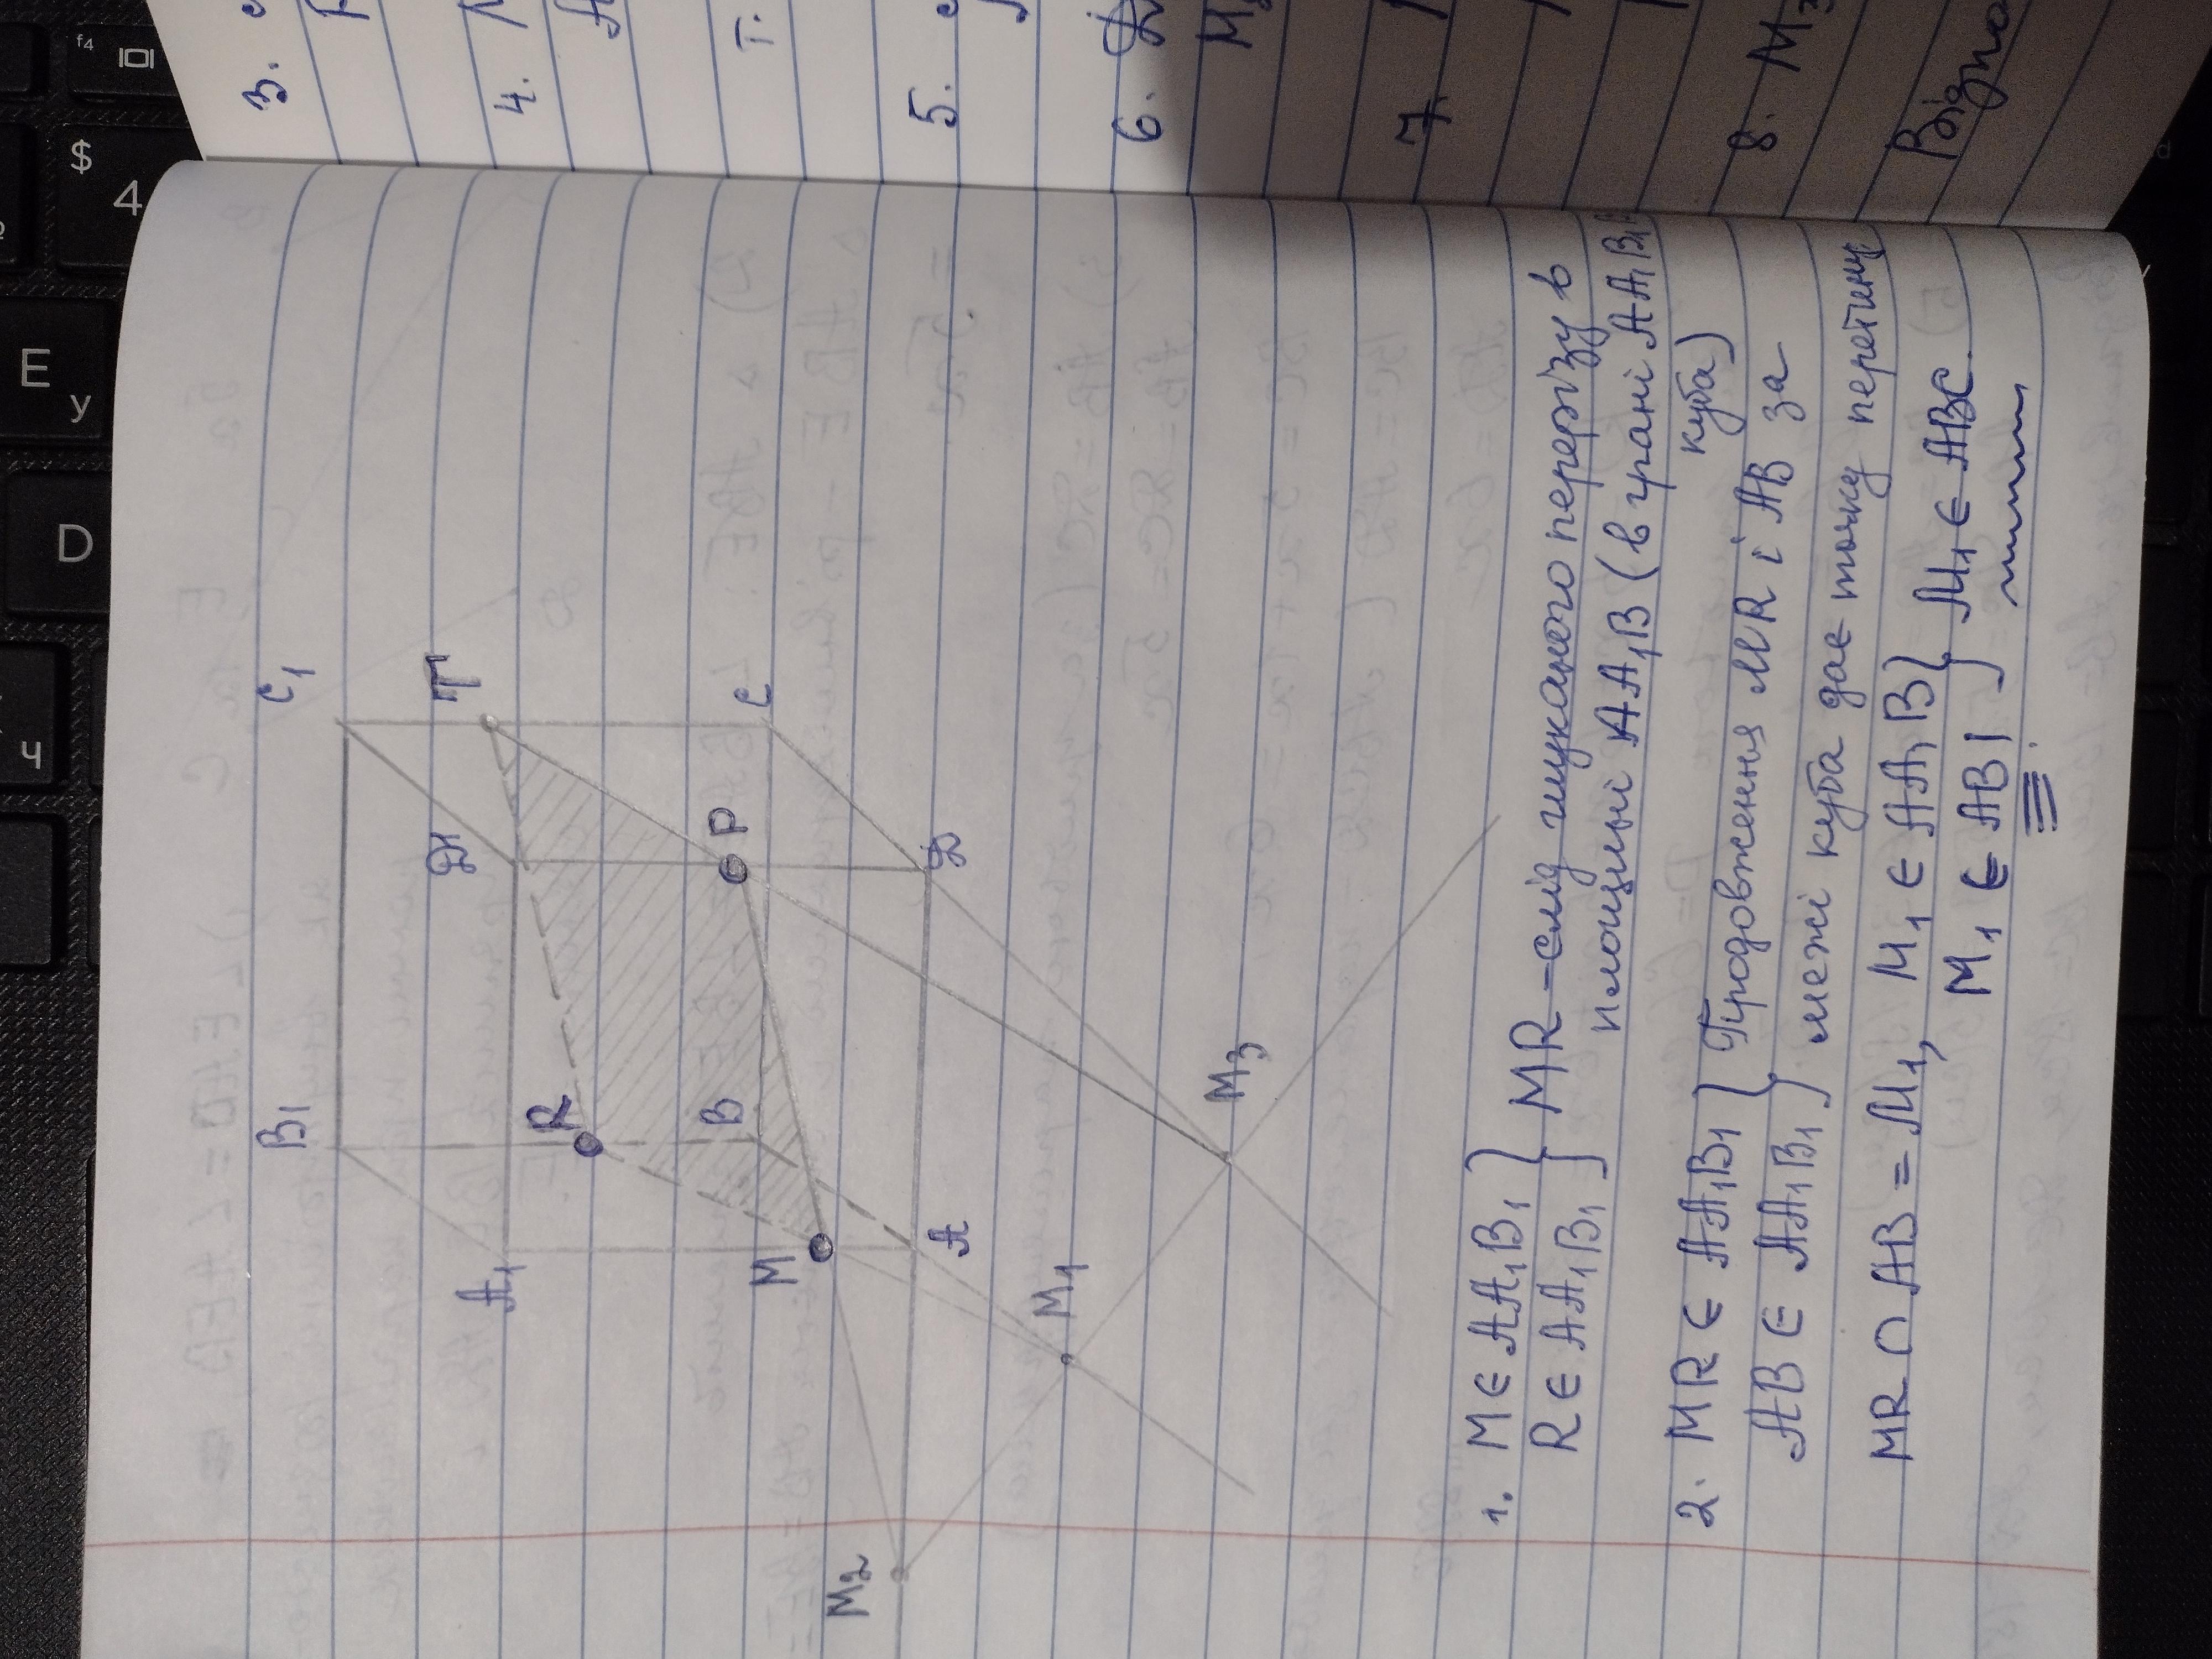 B1
C1
A1
D1
T
R
B
P
C
M
A
D
M2
M1
M3
1. M ∈ AA1B1 } MR – слід шуканого перерізу в
R ∈ AA1B1 } площині AA1B (в грані AA1B1B
куба)
2. MR ∈ AA1B1 } Продовження MR і AB за
AB ∈ AA1B1 } межі куба дає точку перетину
MR ∩ AB = M1, M1 ∈ AA1B } M1 ∈ ABC.
M1 ∈ AB
3.
4.
т.
5.
6.
7.
8. M3
Відпо
f4
$
4
E
У
D
Ч